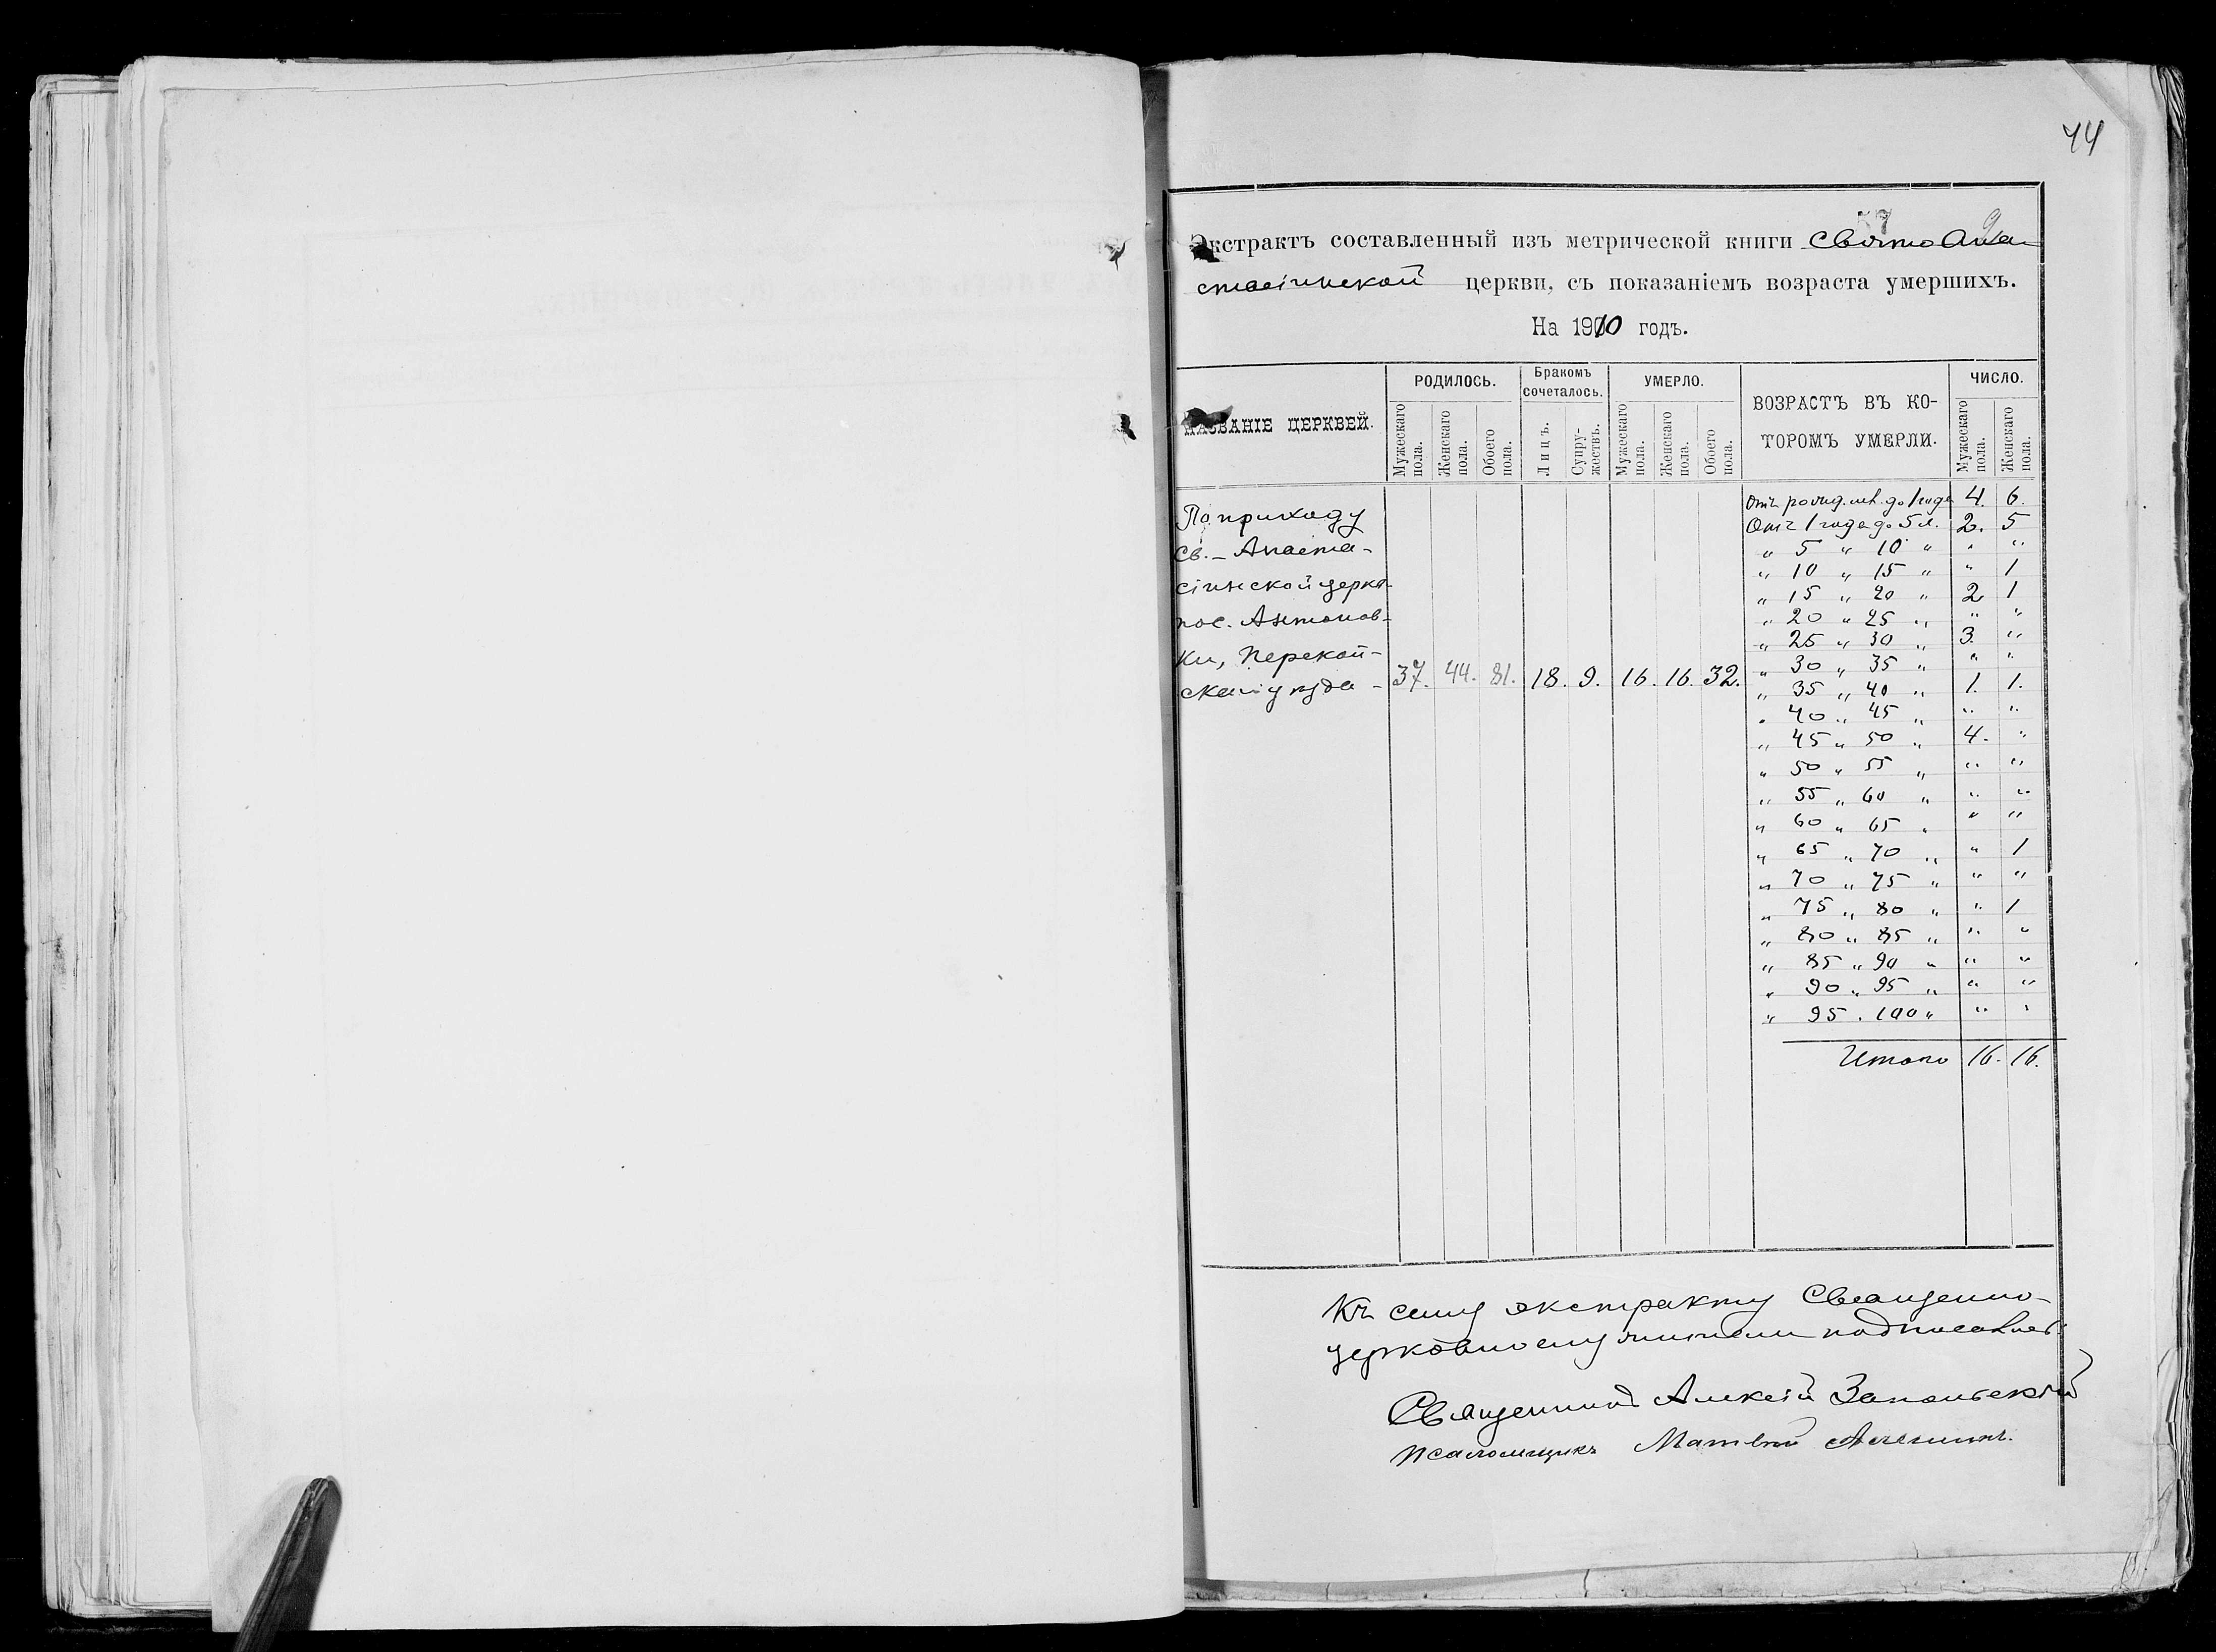 44
57
Экстрактъ составленный изъ метрической книги Свято Ана-
стасіинской церкви, съ показаніемъ возраста умершихъ.
На 1910 годъ.
НАЗВАНІЕ ЦЕРКВЕЙ. РОДИЛОСЬ. Бракомъ сочеталось. УМЕРЛО. ВОЗРАСТЪ ВЪ КО-ТОРОМЪ УМЕРЛИ. ЧИСЛО.
Мужескаго пола. Женскаго пола. Обоего пола. Лицъ. Супру-жествъ. Мужескаго пола. Женскаго пола. Обоего пола. Мужескаго пола. Женскаго пола.
По приходу
Св. - Анаста-
сіинской церкв.
пос. Антонов-
ки, Перекоп-
скаго уѣзда - 37. 44. 81. 18. 9. 16. 16. 32.
Отъ рожд. до 1 года 4. 6.
Отъ 1 года до 5 л. 2. 5
" 5 " 10 " " "
" 10 " 15 " " 1
" 15 " 20 " 2 1
" 20 " 25 " " "
" 25 " 30 " 3. "
" 30 " 35 " " "
" 35 " 40 " 1. 1.
" 40 " 45 " " "
" 45 " 50 " 4. "
" 50 " 55 " " "
" 55 " 60 " " "
" 60 " 65 " " "
" 65 " 70 " " 1
" 70 " 75 " " "
" 75 " 80 " " 1
" 80 " 85 " " "
" 85 " 90 " " "
" 90 " 95 " " "
" 95 " 100 " " "
Итого 16. 16.
Къ сему экстракту Священно-
церковнослужители подписались:
Священникъ Алексій Запольскій
Псаломщикъ Матвей